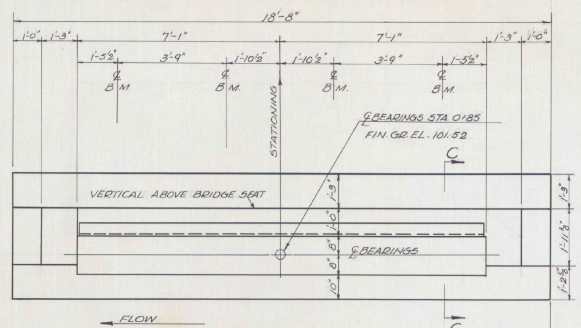 18'-8"
1'-0" 1'-3" 7'-1" 7'-1" 1'-3" 1'-0"
1'-5½" 3'-9" 1'-10½" 1'-10½" 3'-9" 1'-5½"
℄ ℄ ℄ ℄
B.M. B.M. B.M. B.M.
STATIONING
℄ BEARINGS STA. 0+85
FIN. GR. EL. 101.52
C
VERTICAL ABOVE BRIDGE SEAT
1'-3" 1'-3"
1'-0"
8" ℄ BEARINGS
8"
10"
FLOW
C